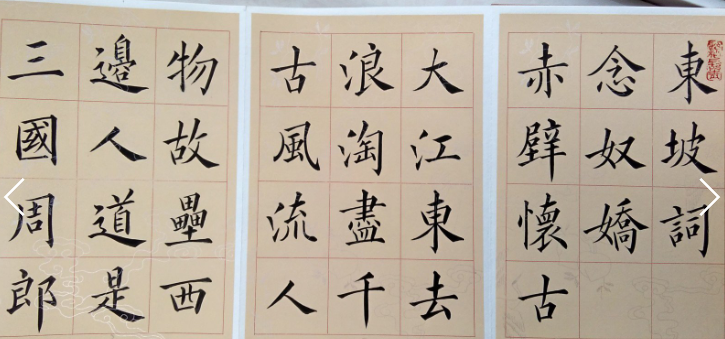 東坡詞
念奴嬌
赤壁懷古
大江東去
浪淘盡千
古風流人
物故壘西
邊人道是
三國周郎